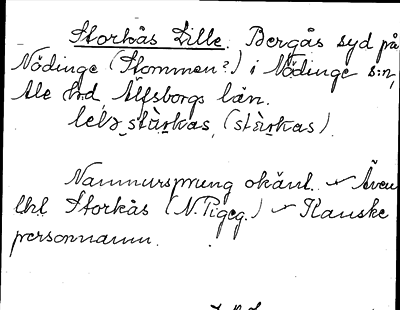 Storkås Lille. Bergås syd på
Nödinge (Stommen?) i Nödinge s:n,
Ale hd, Älfsborgs län.
lelə stàrkas, (stàrkas).
Namnursprung okänt. Även
Storkås (N. Pigeg.) Kanske
personnamn.